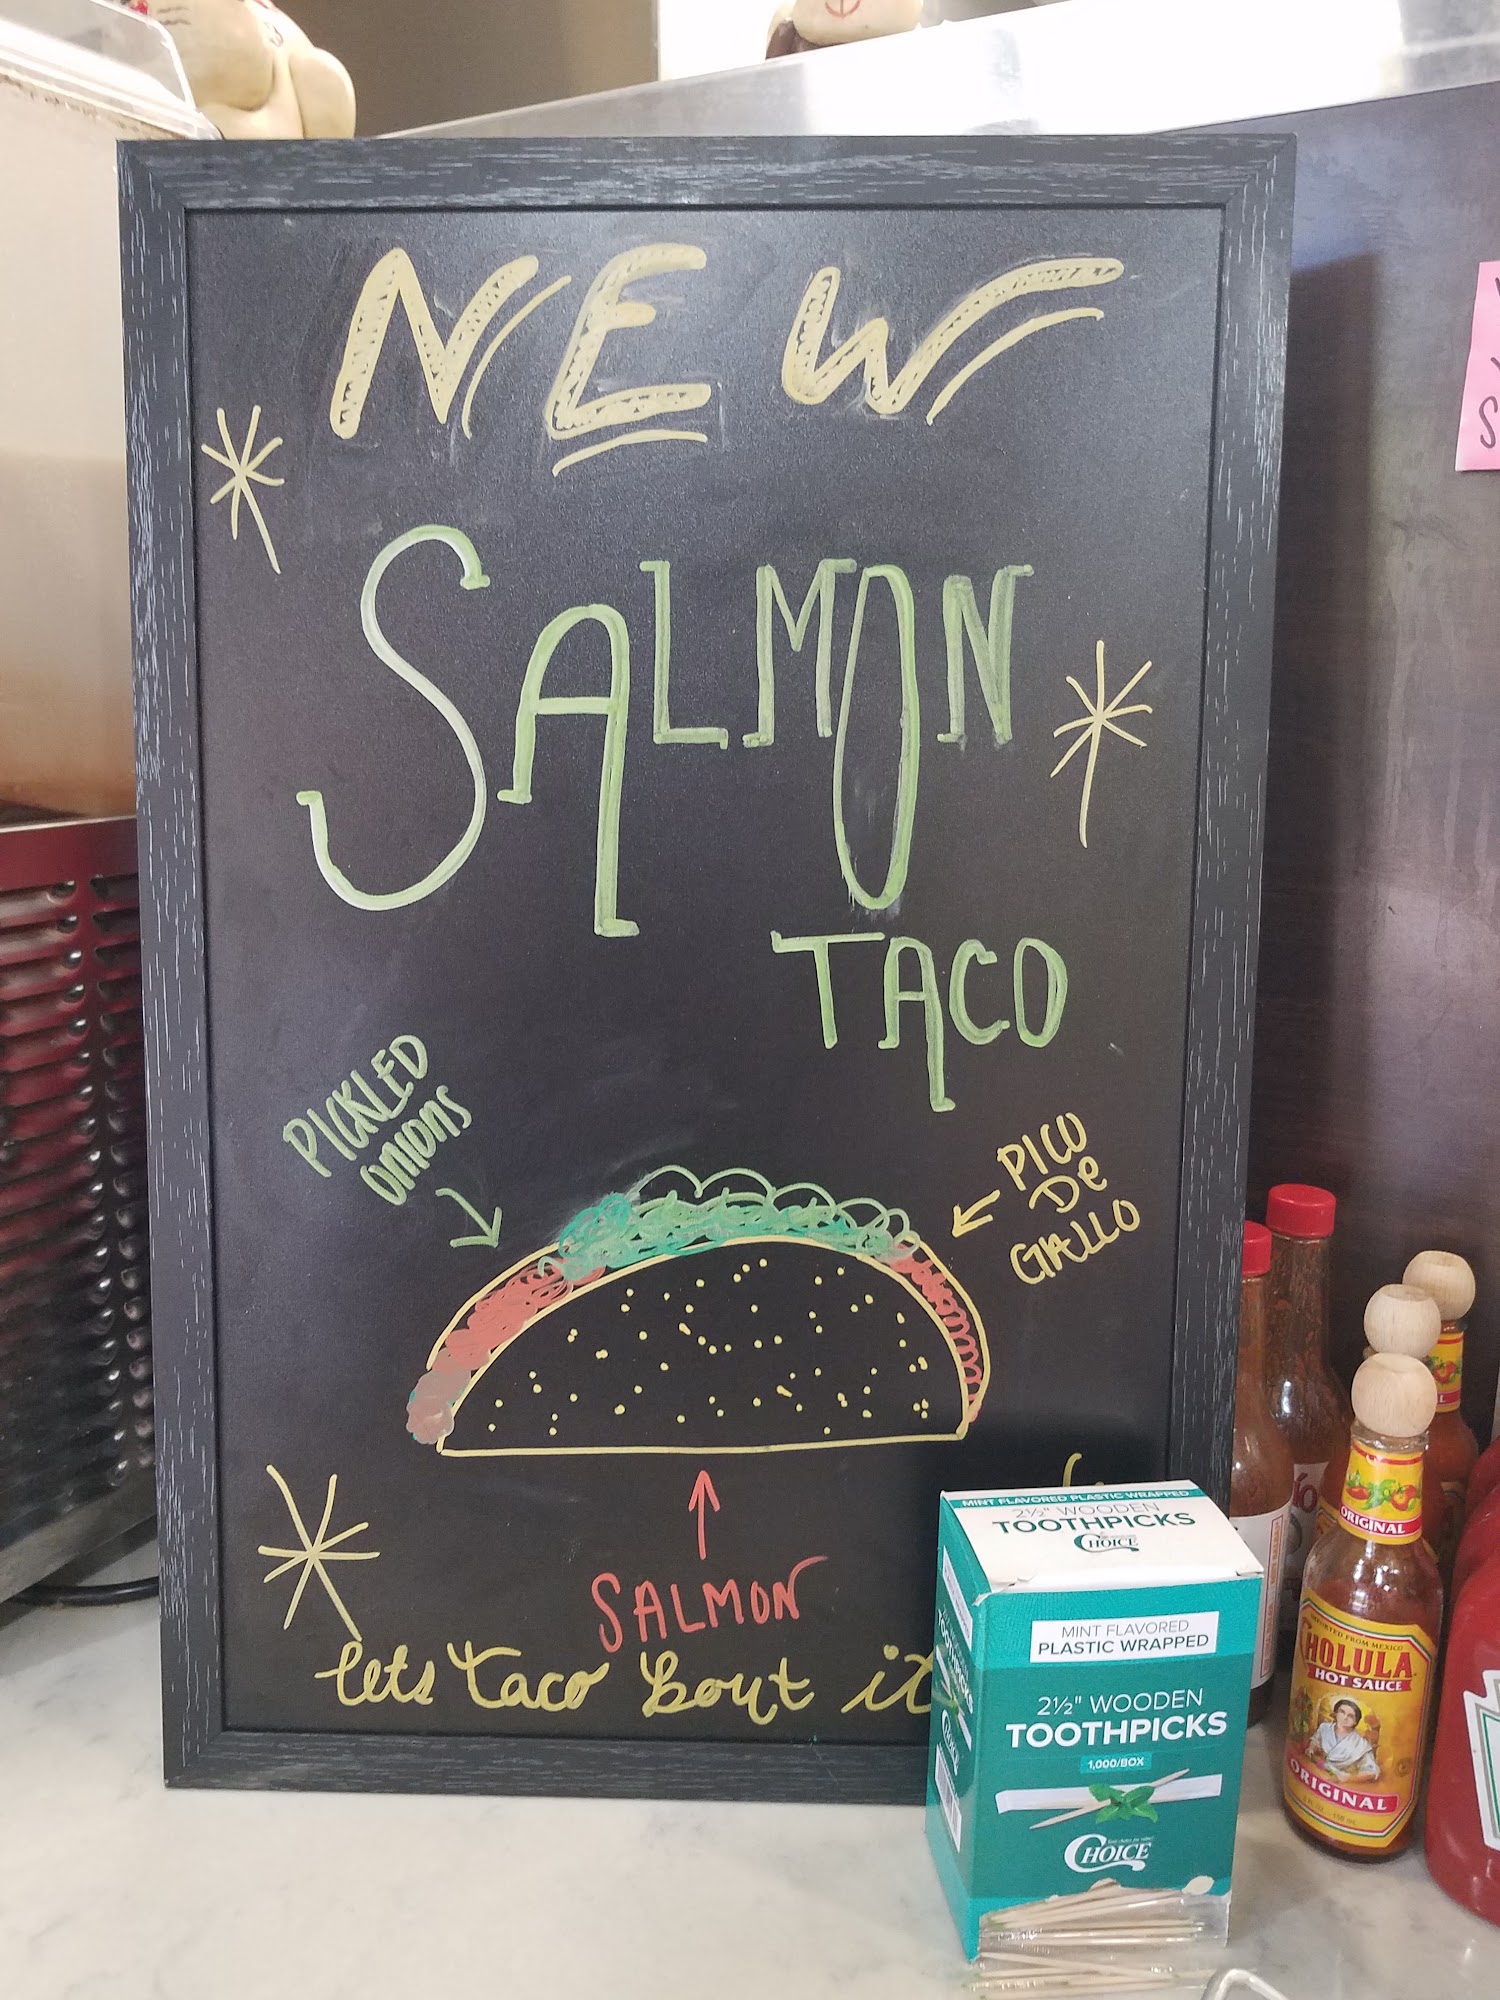 NEW
SALMON
TACO
PICKLED
ONIONS
PICO
De
GALLO
SALMON
lets taco 'bout it
MINT FLAVORED PLASTIC WRAPPED
2½" WOODEN
TOOTHPICKS
CHOICE
MINT FLAVORED
PLASTIC WRAPPED
2½" WOODEN
TOOTHPICKS
1,000/BOX
CHOICE
ORIGINAL
IMPORTED FROM MEXICO
CHOLULA
HOT SAUCE
ORIGINAL